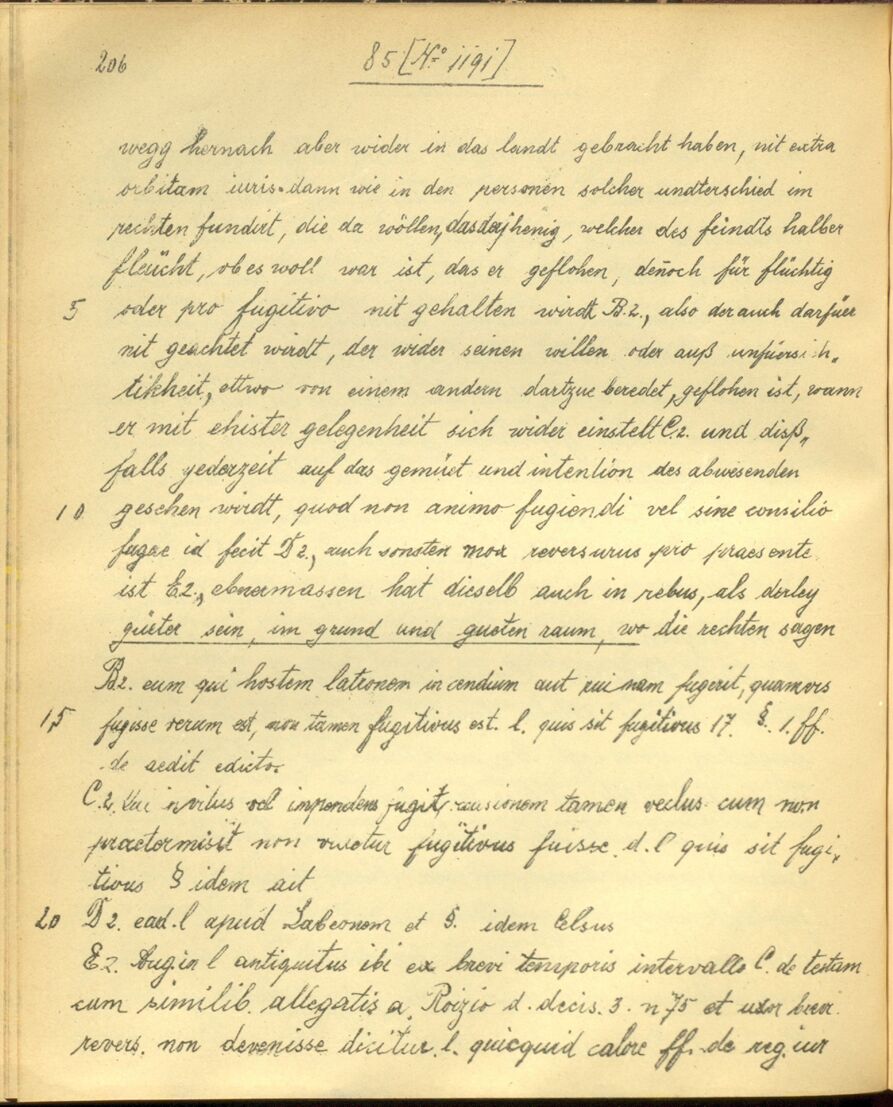 206
85 [No 1191]
wegg hernach aber wider in das landt gebracht haben, nit extra
orbitam iuris. dann wie in den personen solcher undterschied im
rechten fundirt, die da wöllen, das derjhenig, welcher des feindts halber
fleücht, ob es woll war ist, das er geflohen, deñoch für flüchtig
5 oder pro fugitivo nit gehalten wirdt B.2., also der auch darfüer
nit geachtet wirdt, der wider seinen willen oder auß unfüersich„
tikheit, ettwo von einem andern dartzue beredet, geflohen ist, wann
er mit ehister gelegenheit sich wider einstelt C.2. und diß„
falls yederzeit auf das gemüet und intention des abwesenden
10 geschen wirdt, quod non animo fugiendi vel sine consilio
fugae id fecit D2., auch sonsten mox reversurus pro praesente
ist E2., ebnermassen hat dieselb auch in rebus, als derley
güeter sein, im grund und gueten raum, wo die rechten sagen
B2. eum qui hostem latronem incendium aut ruinam fugerit, quamvis
15 fugisse verum est, non tamen fugitivus est. l. quis sit fugitivus 17. §. 1. ff.
de aedit edicto.
C.2. invitus vel fugit, tamen cum non
praetermisit non videtur fugitivus fuisse. d. l quis sit fugi„
tivus § idem ait
20 D2. ead. l apud Labeonem et §. idem Celsus
E2. l antiquitus ibi ex brevi temporis intervallo C. de testam
cum similib. allegatis a Roizio d. decis. 3. n 75 et uxor brevi
revers. non devenisse dicitur. l. quicquid calore ff. de reg. iur